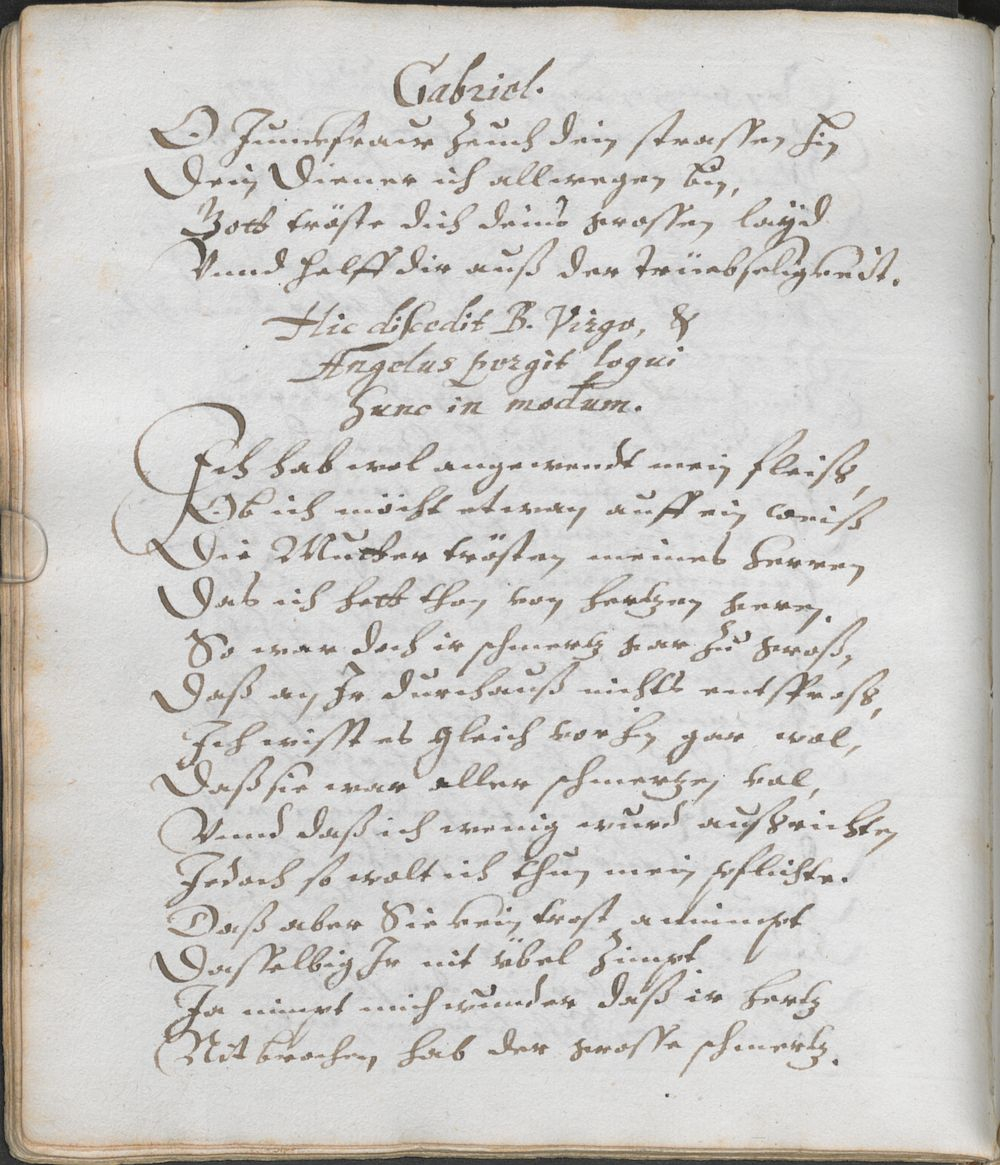 Gabriel.
O Junckfraw zeuch dein strassen hin
Dein Diener ich allwegen bin,
Gott tröste dich deins grossen layd
Vnnd helff dir auß der Trüebseligkeit.
Hic discedit B. Virgo, &
Angelus pergit loqui
hunc in modum.
Ich hab wol angewendt mein fleiß,
Ob ich möcht etwan auff ein weiß
Die Mutter trösten meines herren
Das ich hett thon von hertzen geren.
So war doch ir schmertz gar zu groß,
Daß an Ir durchauß nichts entsproß,
Ich wisst es gleich vorhin gar wol,
Daß sie war aller schmertzen vol,
Vnnd daß ich wenig wurd außrichten
Jedoch so wolt ich thun mein pflichte.
Daß aber Sie kein trost annimpt
Dasselbig Ir nit übel zimpt
Ja nimpt mich wunder daß ir hertz
Nit brochen hab der grosse schmertz.